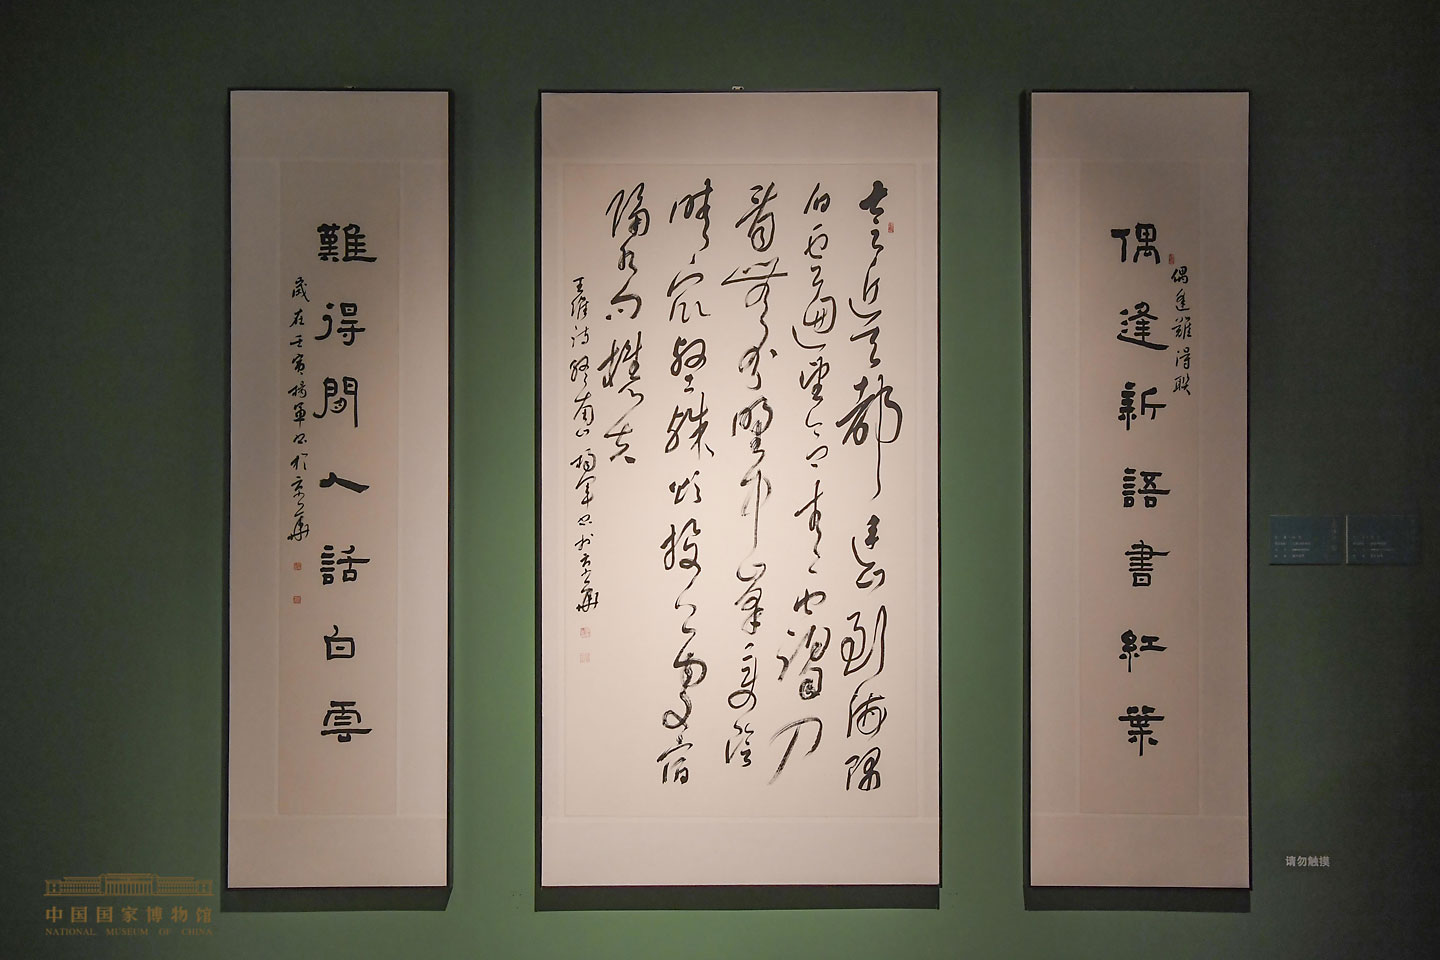 偶逢新語書紅葉
偶逢難得聯
太乙近天都連山到海隅
白雲迴望合青靄入
看無分野中峰變陰
晴眾壑殊欲投人處宿
隔水問樵夫
王維詩終南山楊軍書於京華
難得閒人話白雲
歲在壬寅楊軍書於京華
请勿触摸
中国国家博物馆
NATIONAL MUSEUM OF CHINA